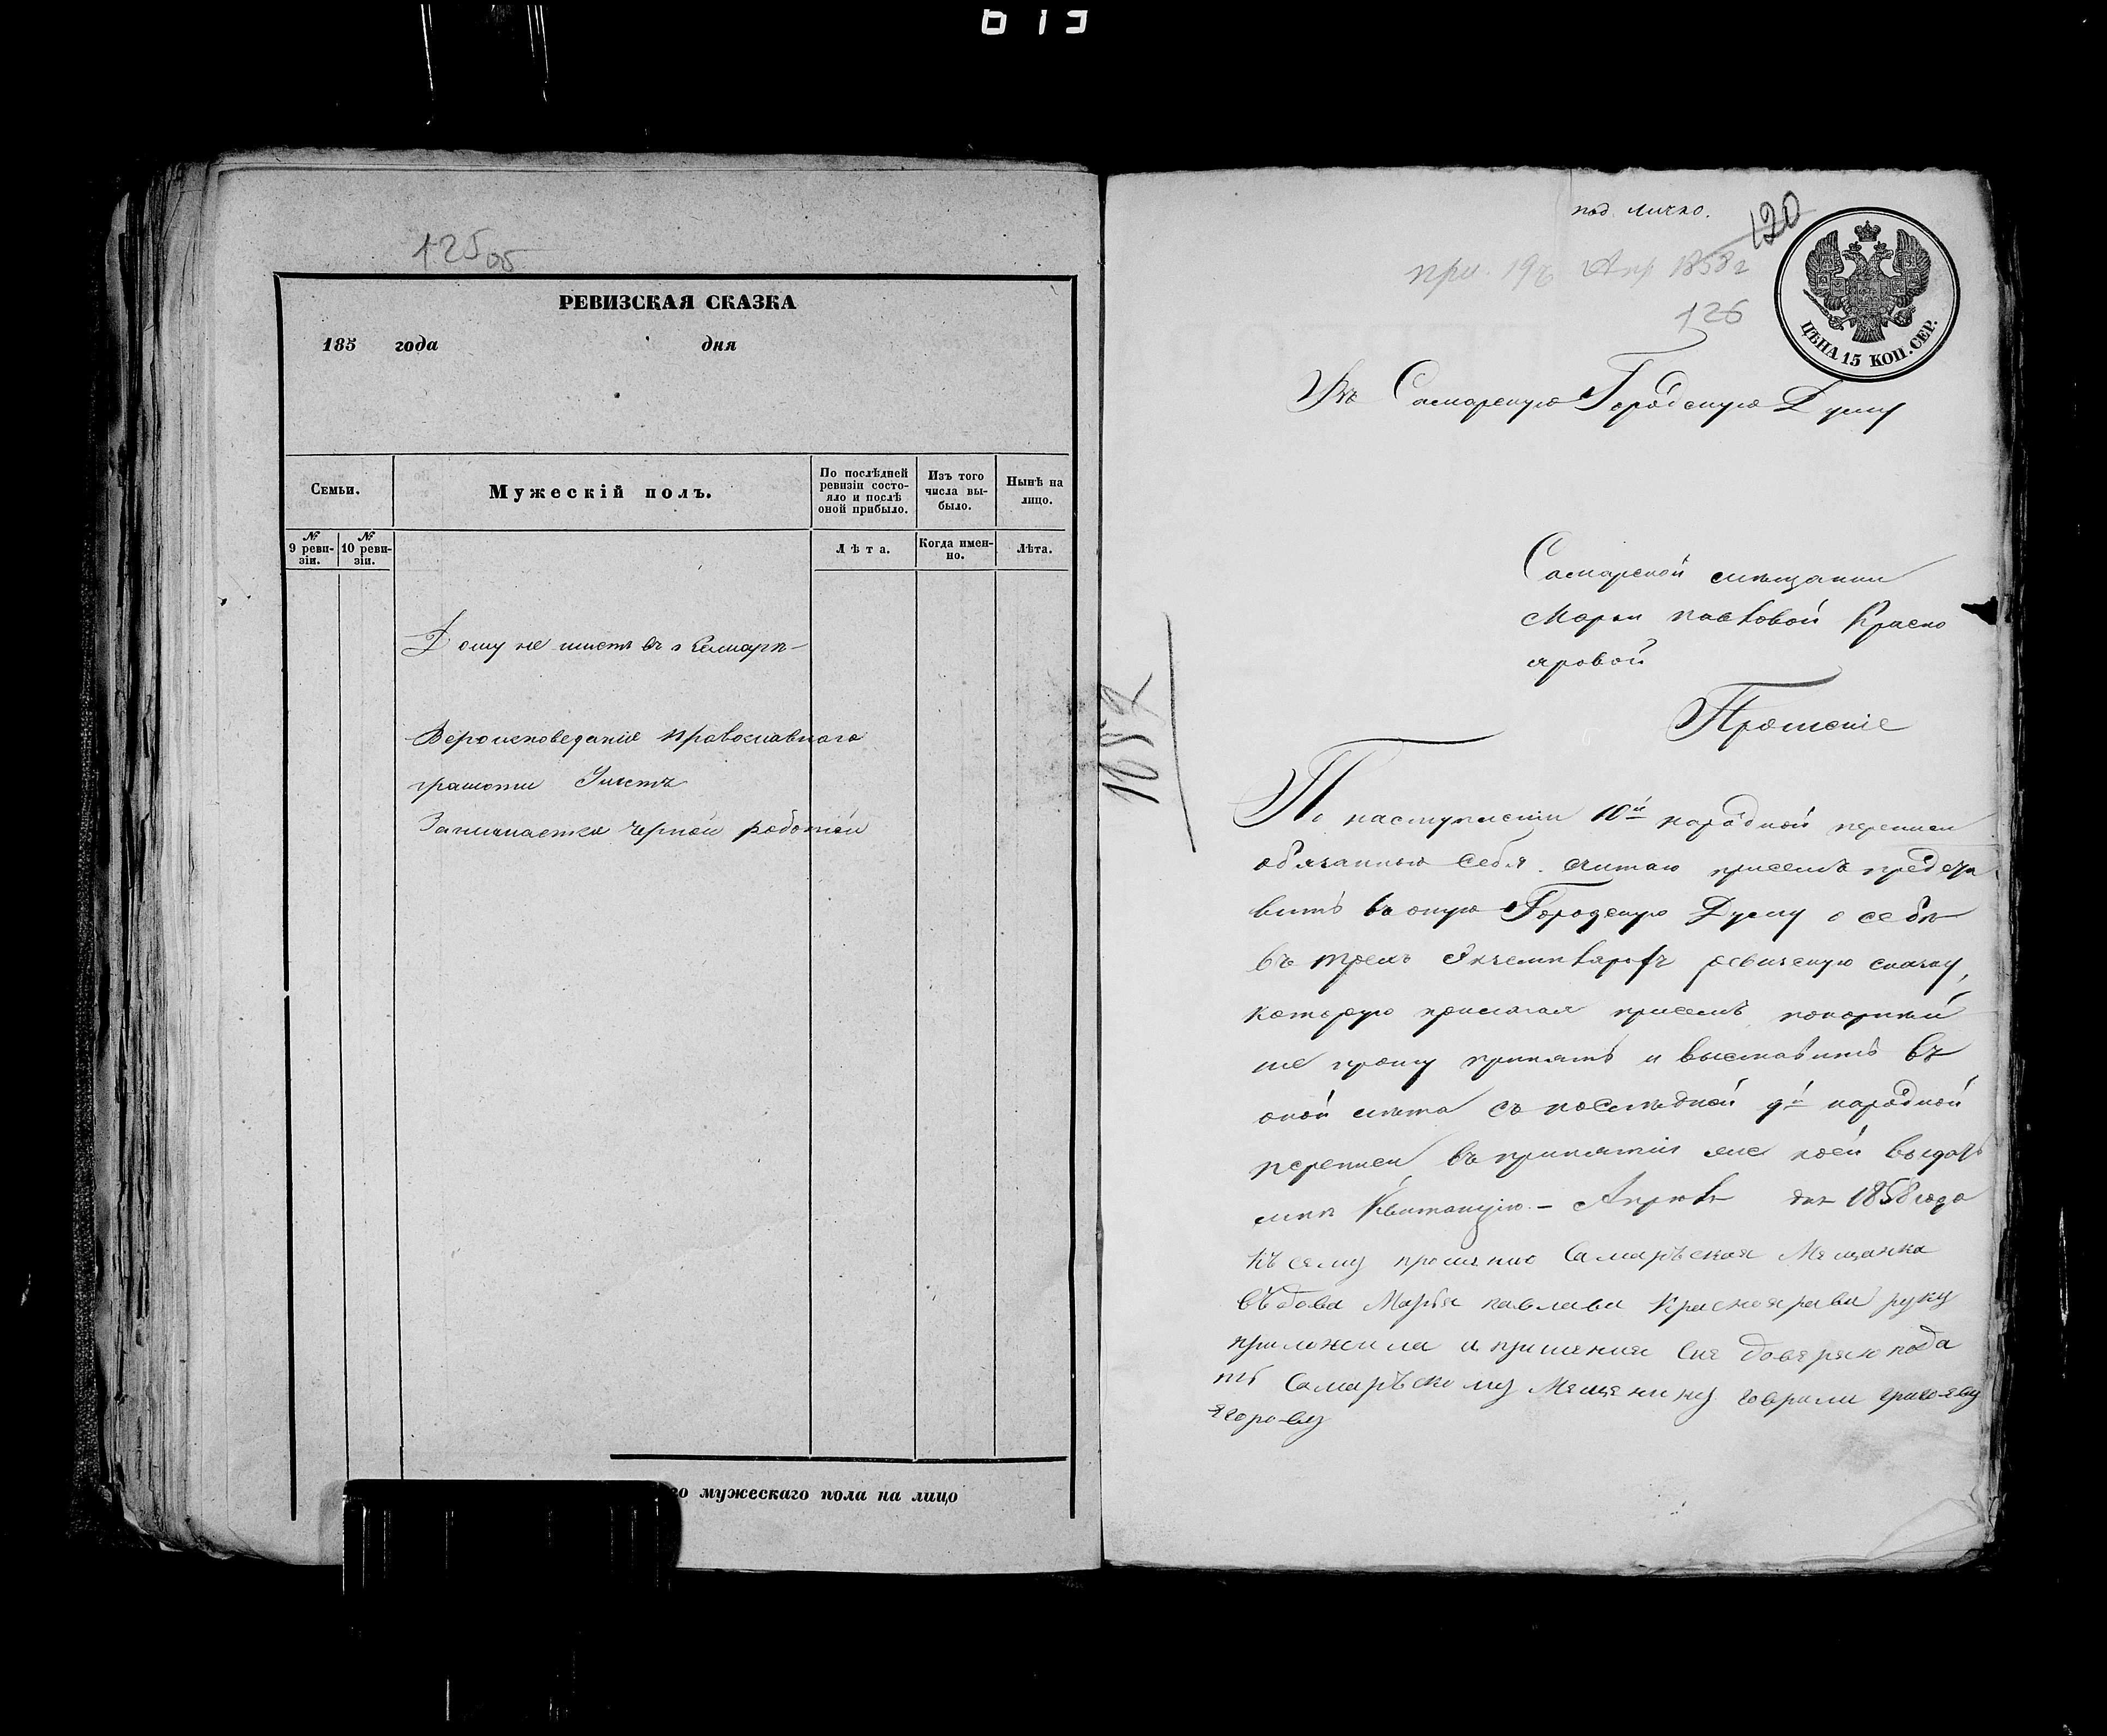 125об
РЕВИЗСКАЯ СКАЗКА
185 года дня
Семьи.
Мужескій полъ.
По послѣдней ревизіи состояло и послѣ оной прибыло.
Изъ того числа выбыло.
Нынѣ на лицо.
№ 9 ревизіи.
№ 10 ревизіи.
Лѣта.
Когда именно.
Лѣта.
Дому не имѣетъ въ г Самарѣ
Вероисповеданія православнаго
грамоти Умѣетъ
Занимается черной работой
го мужескаго пола на лицо
под. лично.
120
при. 19го Апр 1858г
126
ЦѢНА 15 КОП. СЕР.
Въ Самарскую Городскую Думу
Самарской мѣщанки
Марьи Павловой Красно
яровой
Прошеніе
По наступленіи 10й народной переписи
обязанною себя считаю присемъ предста
вить въ оную Городскую Думу о себѣ
въ трехъ Экземплярахъ ревизскую сказку,
которую прилагая присемъ покорнѣй
ше прошу принять и выставить въ
оной лѣта съ последней 9й народной
переписи, въ принятіи же коей выдать
мнѣ Квитанцію. – Апреля дня 1858 года
къ сему прошению Самаръская Мещанка
въдова Марья павлава Краснаярава руку
приложила и прашения сие доверяю пода
ть Самаръскому Мещенину гаврили григояву
ягорову